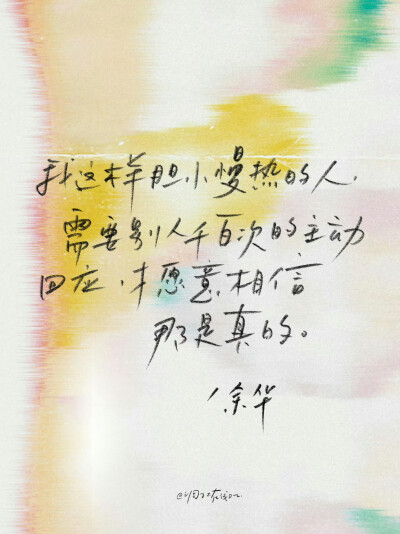 我这样胆小慢热的人,
需要别人千百次的主动
回应,才愿意相信
那是真的。
余华